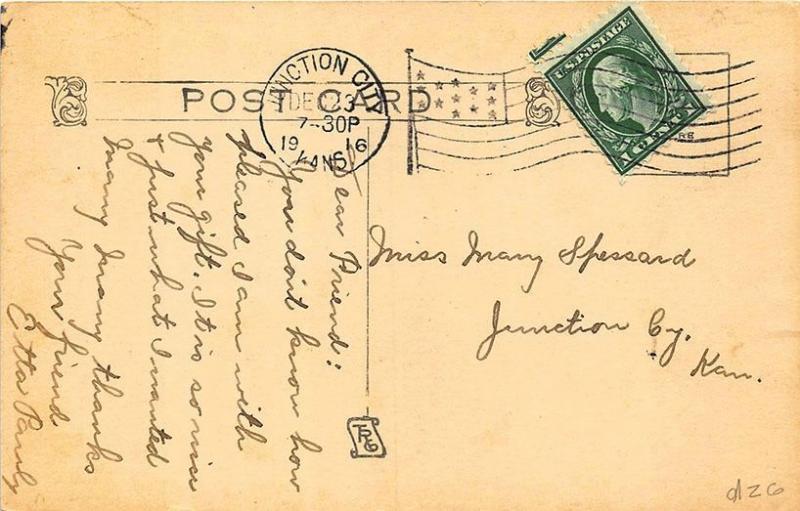 POST CARD
JUNCTION CITY
DEC 23
7-30P
19 16
KANS.
U.S. POSTAGE
1 CENT 1
Dear Friend:
You don't know how
pleased I am with
your gift. It is so nice
& just what I wanted
Many many thanks
Your friend
Etta Pauly
Miss Mary Spessard
Junction Cy.
Kan.